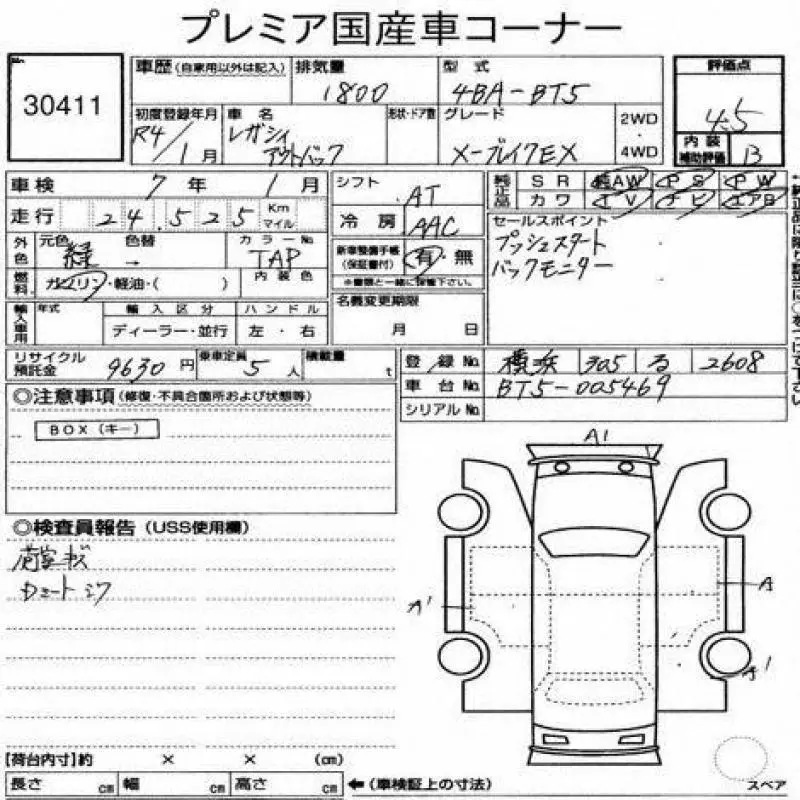 プレミア国産車コーナー
30411
車歴（自家用以外は記入）
排気量
1800
型式
4BA-BT5
評価点
4.5
初度登録年月
R4/1月
車名
レガシィ
アウトバック
形状・ドア数
グレード
X-ブレイクEX
2WD
・
4WD
内装
補助評価
B
車検 7年 1月
シフト AT
純正品
SR 純AW PS PW
カワ TV ナビ エアB
走行 24.525 Km マイル
冷房 AAC
セールスポイント
プッシュスタート
バックモニター
外色
元色 緑
色替 →
カラーNo. TAP
新車整備手帳（保証書付） 有・無
※書類と一緒に保管下さい。
燃料
ガソリン・軽油・（ ）
内装色
輸入車用
年式
輸入区分
ディーラー・並行
ハンドル
左・右
名義変更期限
月 日
リサイクル預託金 9630円
乗車定員 5人
積載量 t
登録No. 横浜 305 る 2608
車台No. BT5-005469
シリアルNo.
◎注意事項（修復・不具合箇所および状態等）
BOX（キー）
◎検査員報告（USS使用欄）
荷室キズ
シート シワ
A1
A1
A
A1
【荷台内寸】約 × × （cm）
長さ cm 幅 cm 高さ cm ←（車検証上の寸法）
スペア